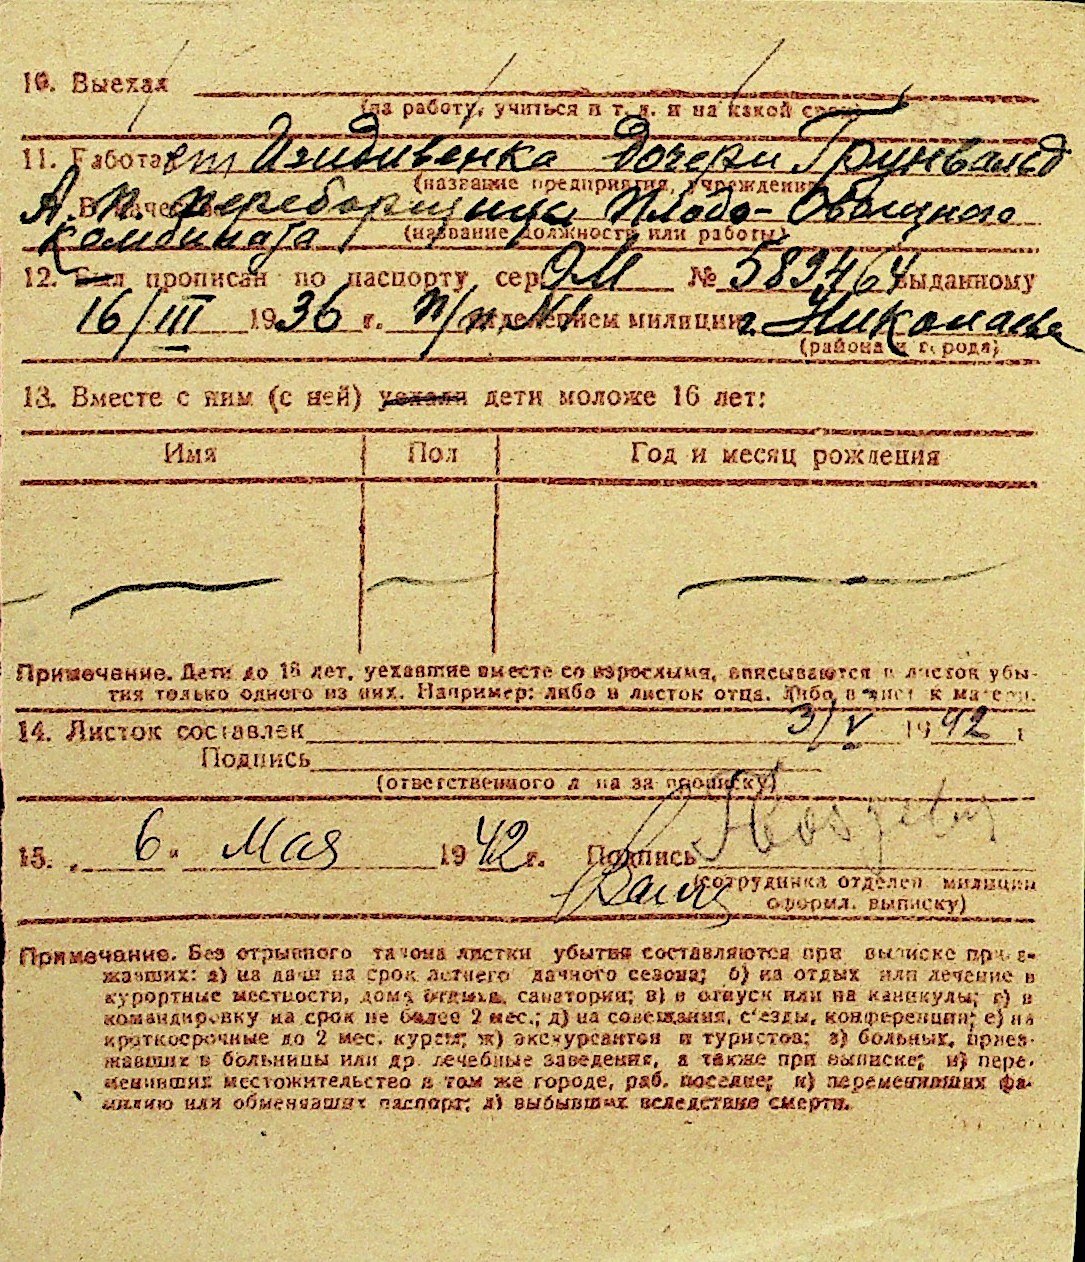 10. Выехал
(на работу, учиться и т. д. и на какой срок)
11. Работает Иждивенка дочери Грунвальд
(название предприятия, учреждения)
А. П. переборщица Плодо-Овощного
В качестве
Комбината (название должности или работы)
12. Был прописан по паспорту сер. ОМ № 589464 выданному
16/III 1936 г. п/п отделением милиции г. Николаева
(района и города)
13. Вместе с ним (с ней) уехали дети моложе 16 лет:
Имя Пол Год и месяц рождения
Примечание. Дети до 16 лет, уехавшие вместе со взрослыми, вписываются в листок убы-
тия только одного из них. Например: либо в листок отца, либо в лист к матери.
14. Листок составлен 3/V 1942 г
Подпись
(ответственного л на за прописку)
15. „ 6 " Мая 1942 г. Подпись
(сотрудника отделен. милиции
оформл. выписку)
Примечание. Без отрывного талона листки убытия составляются при выписке приез-
жавших: а) на дачи на срок летнего дачного сезона; б) на отдых или лечение в
курортные местности, дома отдыха, санатории; в) в отпуск или на каникулы; г) в
командировку на срок не более 2 мес.; д) на совещания, с'езды, конференции; е) на
краткосрочные до 2 мес. курсы; ж) экскурсантов и туристов; з) больных, приез-
жавших в больницы или др. лечебные заведения, а также при выписке; и) пере-
менивших местожительство в том же городе, раб. поселке; к) переменивших фа-
милию или обменявших паспорт; л) выбывших вследствие смерти.